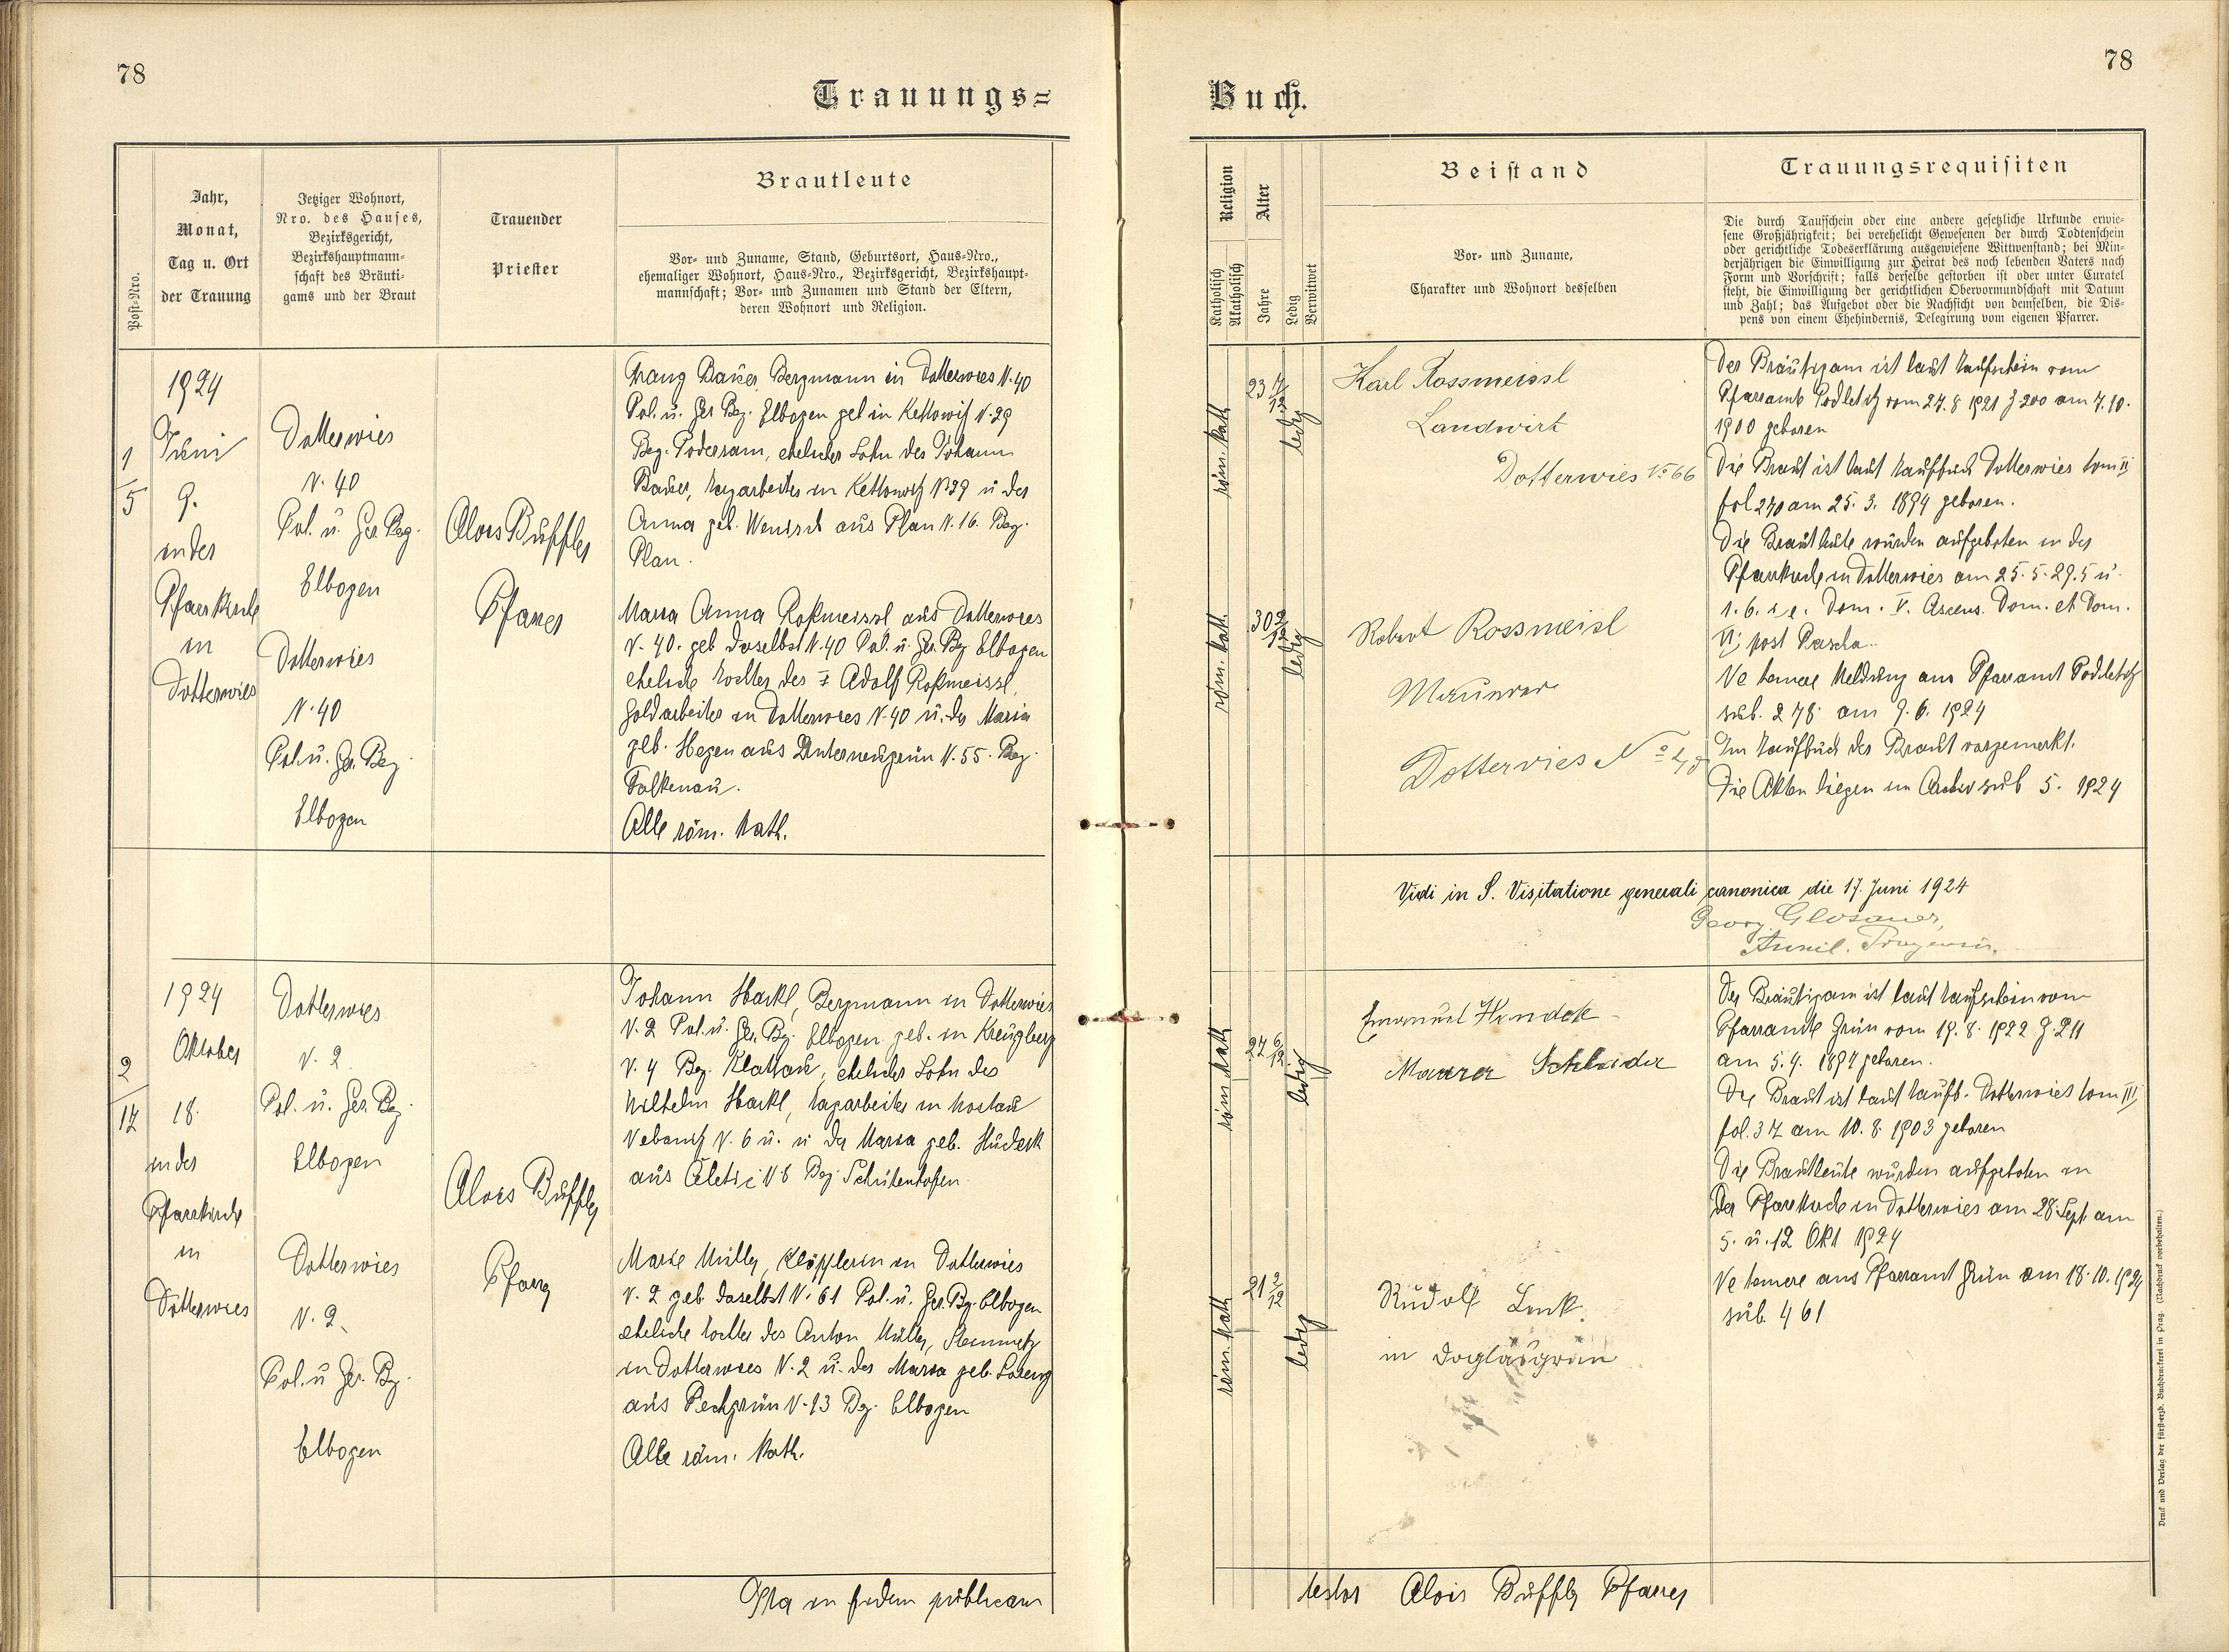 78
Trauungs=
Post-Nro.
Jahr,
Monat,
Tag u. Ort
der Trauung
Jetziger Wohnort,
Nro. des Hauses,
Bezirksgericht,
Bezirkshauptmann-
schaft des Bräuti-
gams und der Braut
Trauender
Priester
Brautleute
Vor- und Zuname, Stand, Geburtsort, Haus-Nro.,
ehemaliger Wohnort, Haus-Nro., Bezirksgericht, Bezirkshaupt-
mannschaft; Vor- und Zunamen und Stand der Eltern,
deren Wohnort und Religion.
1
5
1924
Juni
9.
in der
Pfarrkirche
in
Dotterwies
Dotterwies
N. 40
Pol. u. Ger. Bez.
Elbogen
Dotterwies
N. 40
Pol. u. Ger. Bez.
Elbogen
Alois Büffler
Pfarrer
Franz Bauer, Bergmann in Dotterwies N. 40
Pol. u. Ger. Bez. Elbogen geb in Kettowitz N. 29
Bez. Podersam, ehelicher Sohn des Johann
Bauer, Tagarbeiter in Kettowitz N 29 u der
Anna geb. Wenisch aus Plan N. 16. Bez.
Plan.
Maria Anna Roßmeissl aus Dotterwies
N. 40. geb daselbst N. 40 Pol. u. Ger. Bez Elbogen
eheliche Tochter des Adolf Roßmeissl,
Goldarbeiter in Dotterwies N. 40 u. der Maria
geb. Hegen aus Unterneugrün N. 55. Bez.
Falkenau.
Alle röm. kath.
2
17
1924
Oktober
18.
in der
Pfarrkirche
in
Dotterwies
Dotterwies
N. 2
Pol. u. Ger. Bez.
Elbogen
Dotterwies
N. 2.
Pol. u Ger. Bz.
Elbogen
Alois Büffler
Pfarrer
Johann Hackl, Bergmann in Dotterwies
N. 2 Pol. u. Ger. Bz. Elbogen geb. in Kreuzberg
N. 4 Bez. Klattau, ehelicher Sohn des
Wilhelm Hackl, Tagarbeiter in
N. 6 u. u der Maria geb.
aus N. 8 Bez. Schüttenhofen.
Marie Müller, Klöpplerin in Dotterwies
N. 2 geb. daselbst N. 61 Pol. u. Ger. Bz. Elbogen
eheliche Tochter des Anton Müller, Steinmetz
in Dotterwies N. 2 u. der Maria geb. Lorenz
aus Pechgrün N. 13 Bz. Elbogen
Alle röm. kath.
Ita in fidem publicam
78
Buch.
Religion
Katholisch
Akatholisch
Alter
Jahre
Ledig
Verwitwet
Beistand
Vor- und Zuname,
Charakter und Wohnort desselben
Trauungsrequisiten
Die durch Taufschein oder eine andere gesetzliche Urkunde erwie-
sene Großjährigkeit; bei verehelicht Gewesenen der durch Todtenschein
oder gerichtliche Todeserklärung ausgewiesene Wittwenstand; bei Min-
derjährigen die Einwilligung zur Heirat des noch lebenden Vaters nach
Form und Vorschrift; falls derselbe gestorben ist oder unter Curatel
steht, die Einwilligung der gerichtlichen Obervormundschaft mit Datum
und Zahl; das Aufgebot oder die Nachsicht von demselben, die Dis-
pens von einem Ehehindernis, Delegirung vom eigenen Pfarrer.
röm. kath.
23 7/12
ledig
Karl Rossmeissl
Landwirt
Dotterwies No 66
röm. kath.
30 2/12
ledig
Robert Rossmeisl
Maurer
Dotterwies No
Der Bräutigam ist laut Taufschein vom
Pfarramt Podletitz vom 27. 8 1921 Z 200 am 7. 10.
1900 geboren
Die Braut ist laut Taufbuch Dotterwies tom II
fol 270 am 25. 3. 1894 geboren.
Die Brautleute wurden aufgeboten in der
Pfarrkirche in Dotterwies am 25. 5. 29. 5 u.
1. 6. i. e. Dom. V. Ascens. Dom. et Dom.
VI post Pascha.
Ne temere Meldung ans Pfarramt Podletitz
sub. 278. am 9. 6. 1924
Im Taufbuch der Braut vorgemerkt.
Die Akten liegen im Archiv sub 5. 1924
Vidi in S. Visitatione generali canonica die 17. Juni 1924
Georg Glosauer,
röm kath
27 6/12
ledig
Emanuel
Maurer
röm. kath
21 2/12
ledig
Rudolf Lenk.
in Doglasgrün
Der Bräutigam ist laut Taufschein vom
Pfarramte Grün vom 19. 8. 1922 Z. 211
am 5. 4. 1897 geboren.
Die Braut ist laut Taufb. Dotterwies tom III
fol. 37 am 10. 8. 1903 geboren
Die Brautleute wurden aufgeboten in
der Pfarrkirche in Dotterwies am 28. Sept. am
5. u. 12 Okt 1924
Ne temere ans Pfarramt Grün am 18. 10. 1924
sub. 461
testor Alois Büffler Pfarrer
Druck und Verlag der fürst-erzb. Buchdruckerei in Prag. (Nachdruck vorbehalten.)